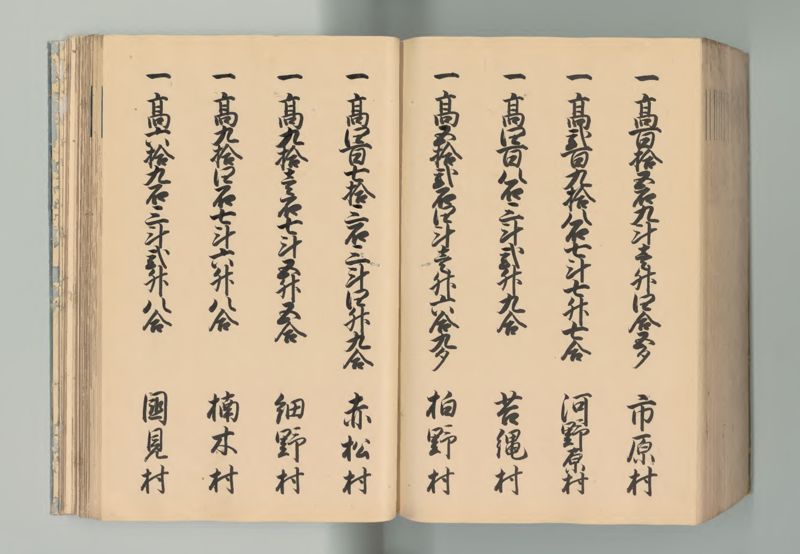 一 高百拾五石九斗壱升四合五夕 市原村
一 高弐百九拾八石七斗七升七合 河野原村
一 高四百八石三斗弐升九合 苔縄村
一 高五拾弐石四斗壱升六合九夕 柏野村
一 高四百七拾三石三斗四升九合 赤松村
一 高九拾壱石七斗五升五合 細野村
一 高九拾四石七斗六升八合 楠木村
一 高六拾九石三斗弐升八合 國見村